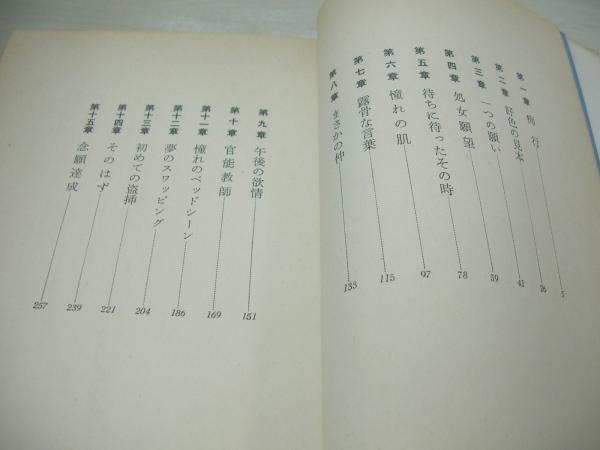 第一章 徇行 5
第二章 好色の見本 26
第三章 一つの願い 41
第四章 処女願望 59
第五章 待ちに待ったその時 78
第六章 憧れの肌 97
第七章 露骨な言葉 115
第八章 まさかの仲 133
第九章 午後の欲情 151
第十章 官能教師 169
第十一章 憧れのベッドシーン 186
第十二章 夢のスワッピング 204
第十三章 初めての盗挿 221
第十四章 そのはず 239
第十五章 念願達成 257